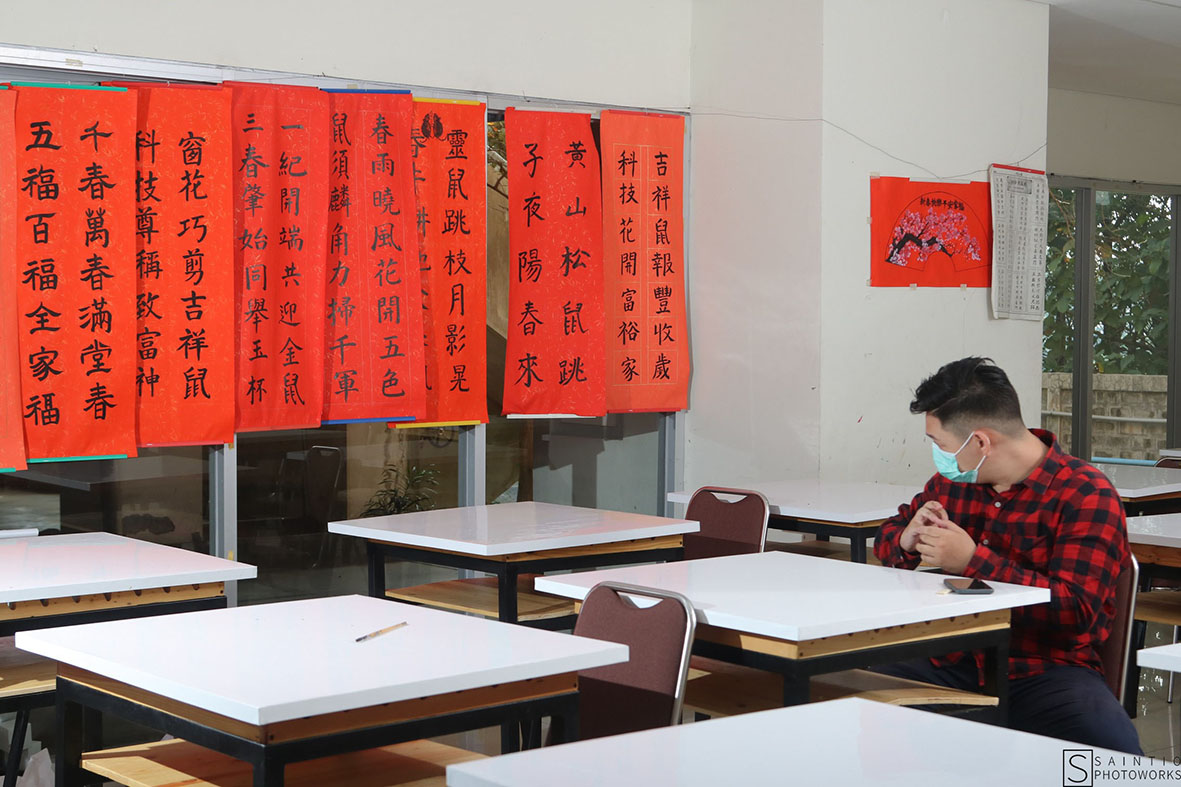 吉祥鼠報豐收歲
科技花開富裕家
黃山松鼠跳
子夜陽春來
靈鼠跳枝月影晃
春雨曉風花開五色
鼠須麟角力掃千軍
一紀開端共迎金鼠
三春肇始同舉玉杯
窗花巧剪吉祥鼠
科技尊稱致富神
千春萬春滿堂春
五福百福全家福
S SAINTIO
PHOTOWORKS